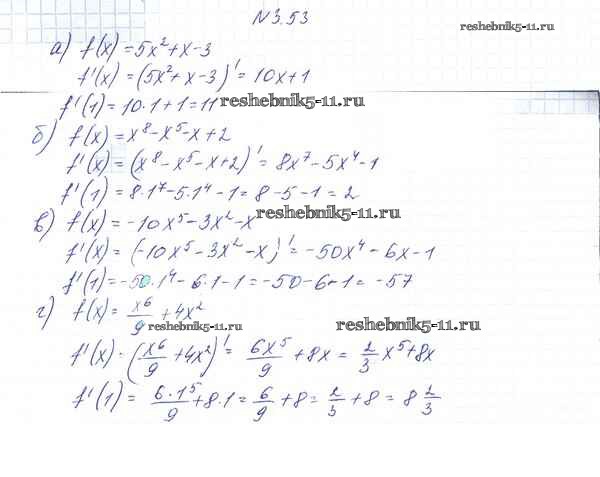 №3.53
reshebnik5-11.ru
а) f(x) = 5x² + x - 3
f'(x) = (5x² + x - 3)' = 10x + 1
f'(1) = 10·1 + 1 = 11 reshebnik5-11.ru
б) f(x) = x⁸ - x⁵ - x + 2
f'(x) = (x⁸ - x⁵ - x + 2)' = 8x⁷ - 5x⁴ - 1
f'(1) = 8·1⁷ - 5·1⁴ - 1 = 8 - 5 - 1 = 2
в) f(x) = -10x⁵ - 3x² - x reshebnik5-11.ru
f'(x) = (-10x⁵ - 3x² - x)' = -50x⁴ - 6x - 1
f'(1) = -50·1⁴ - 6·1 - 1 = -50 - 6 - 1 = -57
г) f(x) = x⁶/9 + 4x²
reshebnik5-11.ru reshebnik5-11.ru
f'(x) = (x⁶/9 + 4x²)' = 6x⁵/9 + 8x = 2/3 x⁵ + 8x
f'(1) = 6·1⁵/9 + 8·1 = 6/9 + 8 = 2/3 + 8 = 8 2/3